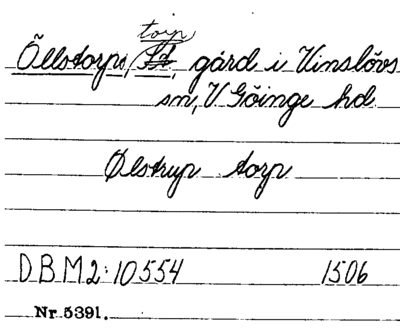 torp
Öllstorps, gård i Vinslövs
sn, V Göinge hd
Ølstrup torp
DBM2:10554 1506
Nr 5391.